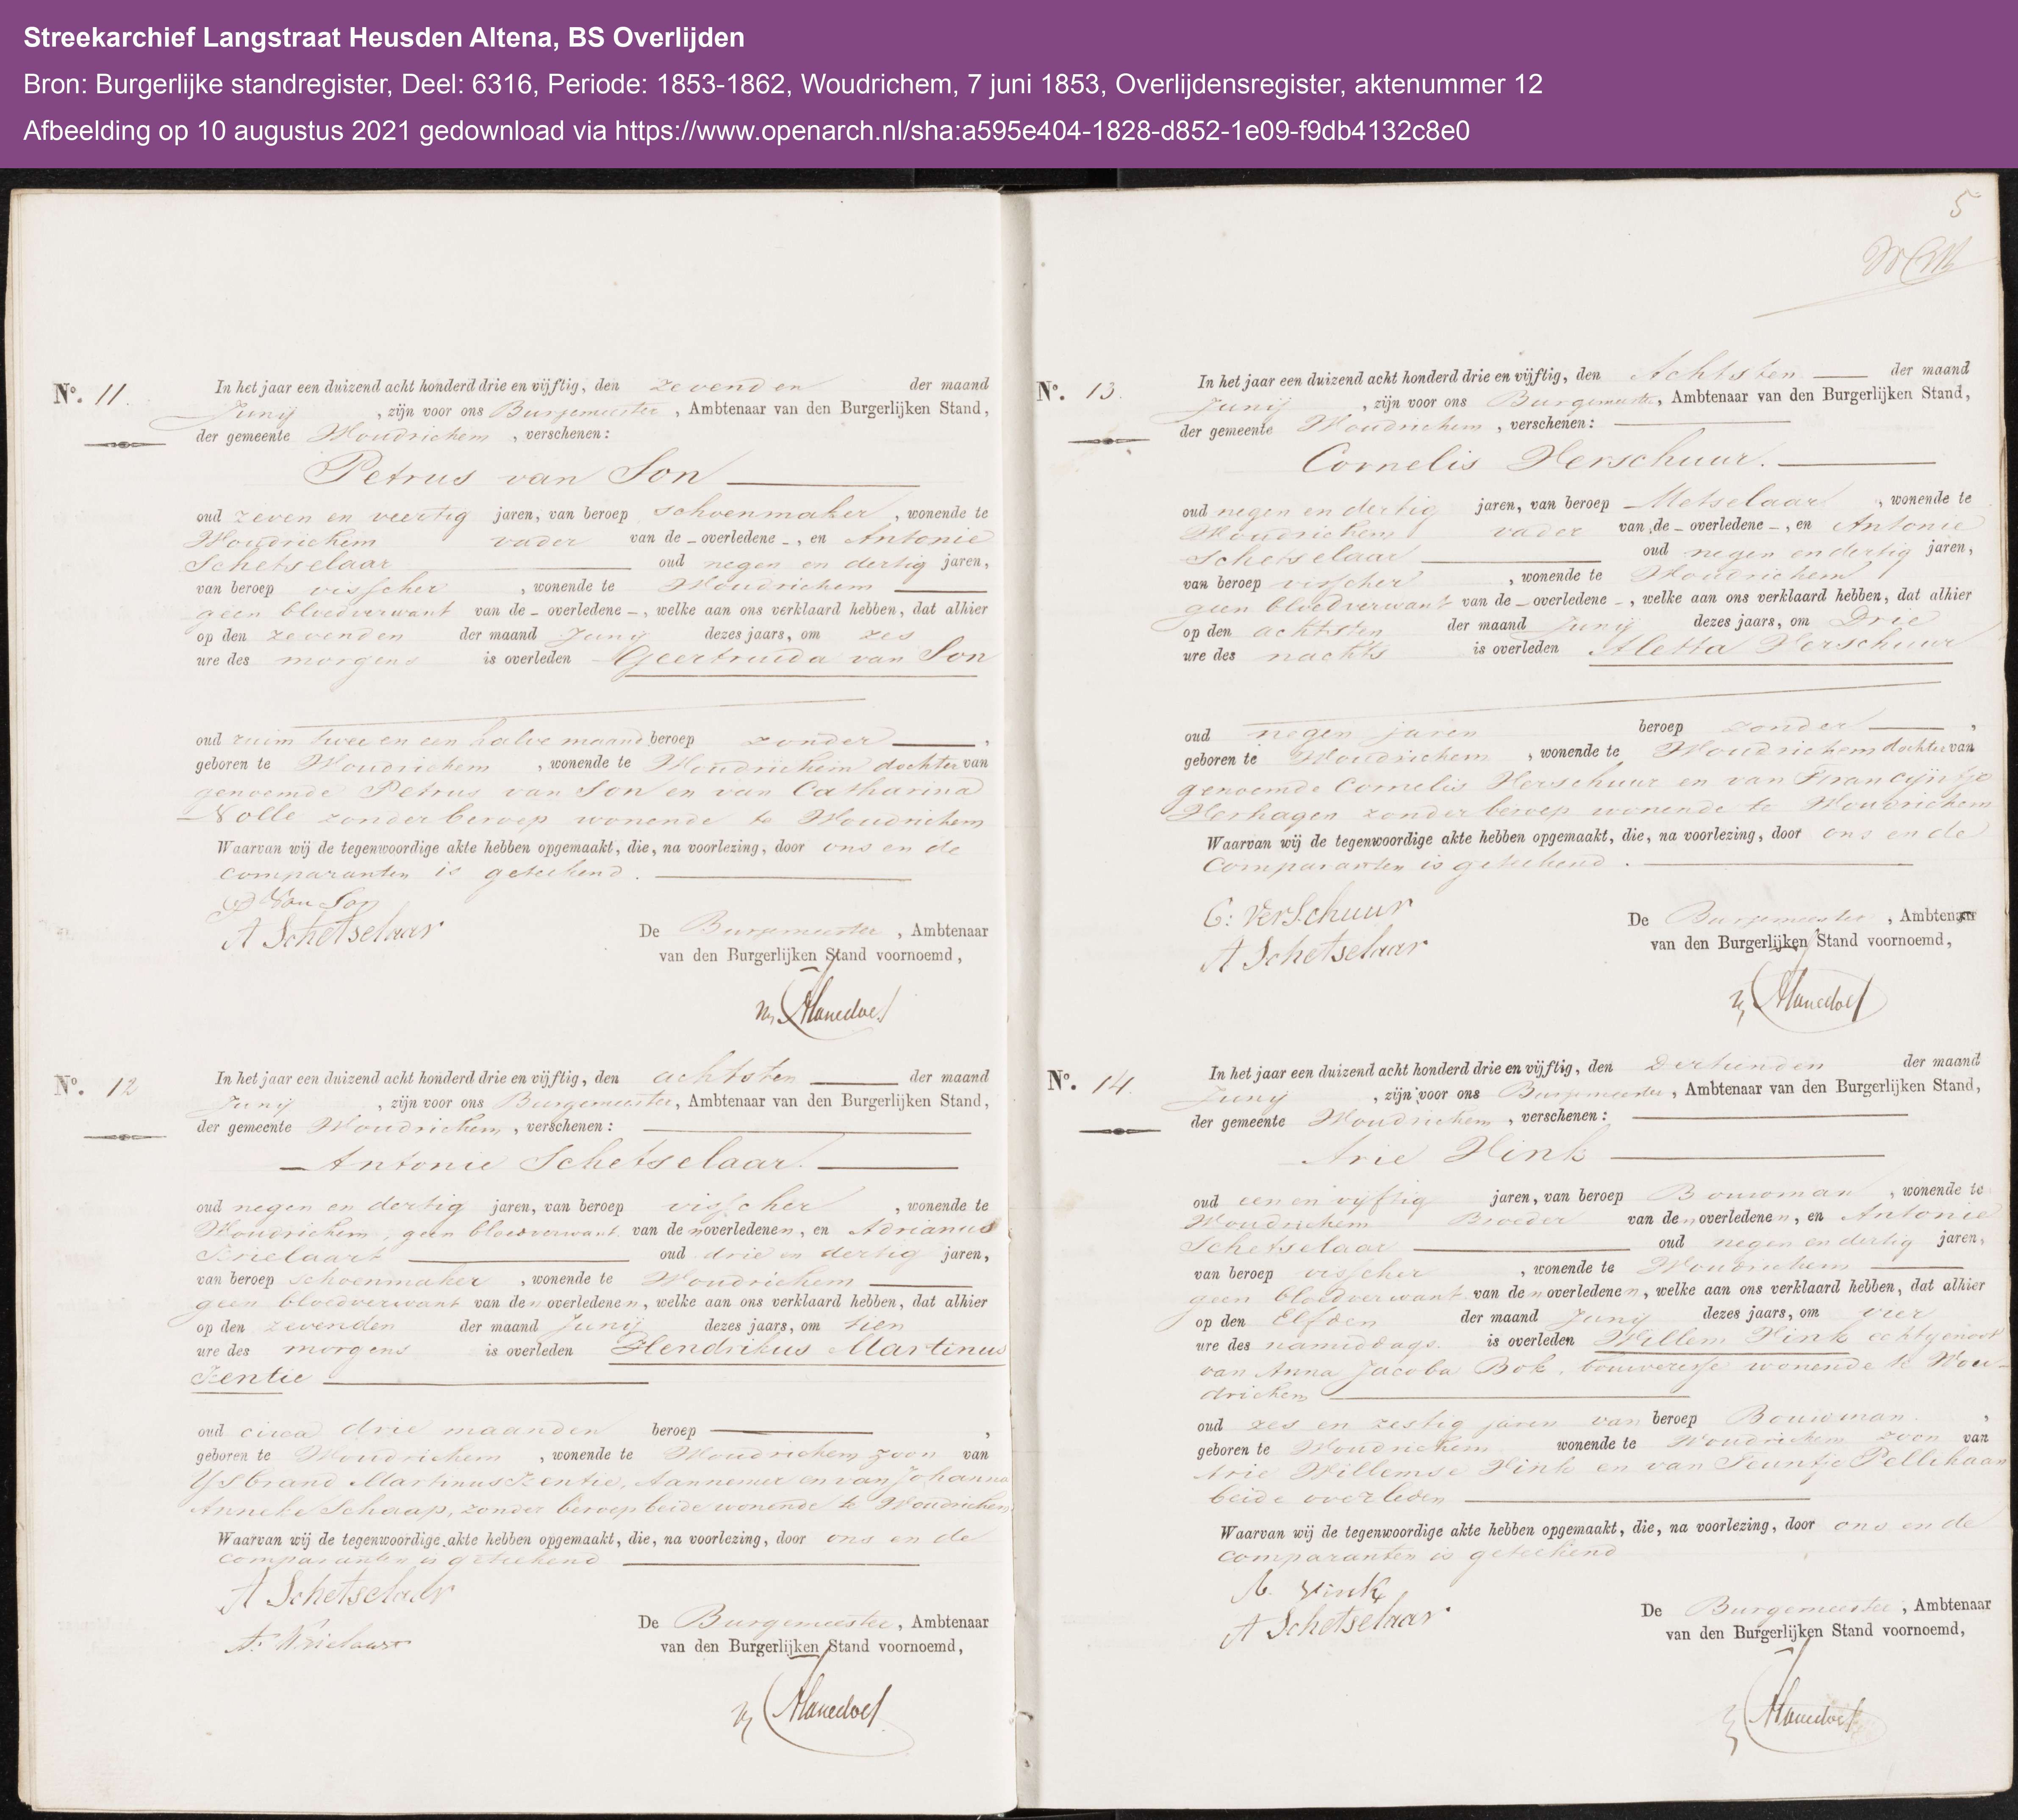 Streekarchief Langstraat Heusden Altena, BS Overlijden
Bron: Burgerlijke standregister, Deel: 6316, Periode: 1853-1862, Woudrichem, 7 juni 1853, Overlijdensregister, aktenummer 12
Afbeelding op 10 augustus 2021 gedownload via https://www.openarch.nl/sha:a595e404-1828-d852-1e09-f9db4132c8e0
No. 11.
In het jaar een duizend acht honderd drie en vijftig, den zevenden der maand
Junij, zijn voor ons Burgemeester, Ambtenaar van den Burgerlijken Stand,
der gemeente Woudrichem, verschenen:
Petrus van Son
oud zeven en veertig jaren, van beroep schoenmaker, wonende te
Woudrichem vader van de overledene, en Antonie
Schetselaar oud negen en dertig jaren,
van beroep visscher, wonende te Woudrichem
geen bloedverwant van de overledene, welke aan ons verklaard hebben, dat alhier
op den zevenden der maand Junij dezes jaars, om zes
ure des morgens is overleden Geertruida van Son
oud ruim twee en een halve maand beroep zonder,
geboren te Woudrichem, wonende te Woudrichem dochter van
genoemde Petrus van Son en van Catharina
Nolle zonder beroep wonende te Woudrichem
Waarvan wij de tegenwoordige akte hebben opgemaakt, die, na voorlezing, door ons en de
comparanten is geteekend.
P Van Son
A Schetselaar
De Burgemeester, Ambtenaar
van den Burgerlijken Stand voornoemd,
No. 12
In het jaar een duizend acht honderd drie en vijftig, den achtsten der maand
Junij, zijn voor ons Burgemeester, Ambtenaar van den Burgerlijken Stand,
der gemeente Woudrichem, verschenen:
Antonie Schetselaar.
oud negen en dertig jaren, van beroep visscher, wonende te
Woudrichem, geen bloedverwant van den overledenen, en Adrianus
oud drie en dertig jaren,
van beroep schoenmaker, wonende te Woudrichem
geen bloedverwant van den overledenen, welke aan ons verklaard hebben, dat alhier
op den zevenden der maand Junij dezes jaars, om tien
ure des morgens is overleden Hendrikus Martinus
Zentie
oud circa drie maanden beroep,
geboren te Woudrichem, wonende te Woudrichem, zoon van
IJsbrand Martinus Zentie, Aannemer en van Johanna
Anneke Schaap, zonder beroep beide wonende te Woudrichem
Waarvan wij de tegenwoordige akte hebben opgemaakt, die, na voorlezing, door ons en de
comparanten is geteekend
A Schetselaar
De Burgemeester, Ambtenaar
van den Burgerlijken Stand voornoemd,
5
No. 13.
In het jaar een duizend acht honderd drie en vijftig, den Achtsten der maand
Junij, zijn voor ons Burgemeester, Ambtenaar van den Burgerlijken Stand,
der gemeente Woudrichem, verschenen:
Cornelis Verschuur.
oud negen en dertig jaren, van beroep Metselaar, wonende te
Woudrichem vader van de overledene, en Antonie
Schetselaar oud negen en dertig jaren,
van beroep visscher, wonende te Woudrichem
geen bloedverwant van de overledene, welke aan ons verklaard hebben, dat alhier
op den achtsten der maand Junij dezes jaars, om Drie
ure des nachts is overleden Aletta Verschuur
oud negen jaren beroep zonder,
geboren te Woudrichem, wonende te Woudrichem dochter van
genoemde Cornelis Verschuur en van Francijntje
Verhagen zonder beroep wonende te Woudrichem
Waarvan wij de tegenwoordige akte hebben opgemaakt, die, na voorlezing, door ons en de
Comparanten is geteekend.
C: VerSchuur
A Schetselaar
De Burgemeester, Ambtenaar
van den Burgerlijken Stand voornoemd,
No. 14.
In het jaar een duizend acht honderd drie en vijftig, den Dertienden der maand
Junij, zijn voor ons Burgemeester, Ambtenaar van den Burgerlijken Stand,
der gemeente Woudrichem, verschenen:
Arie Vink
oud een en vijftig jaren, van beroep Bouwman, wonende te
Woudrichem Broeder van den overledenen, en Antonie
Schetselaar oud negen en dertig jaren,
van beroep visscher, wonende te Woudrichem
geen bloedverwant van den overledenen, welke aan ons verklaard hebben, dat alhier
op den Elfden der maand Junij dezes jaars, om vier
ure des namiddags is overleden Willem Vink echtgenoot
van Anna Jacoba Bok, bouweresse wonende te Wou-
drichem
oud zes en zestig jaren van beroep Bouwman,
geboren te Woudrichem wonende te Woudrichem zoon van
Arie Willemse Vink en van Teuntje Pellikaan
beide overleden
Waarvan wij de tegenwoordige akte hebben opgemaakt, die, na voorlezing, door ons en de
comparanten is geteekend
A. Vink
A Schetselaar
De Burgemeester, Ambtenaar
van den Burgerlijken Stand voornoemd,